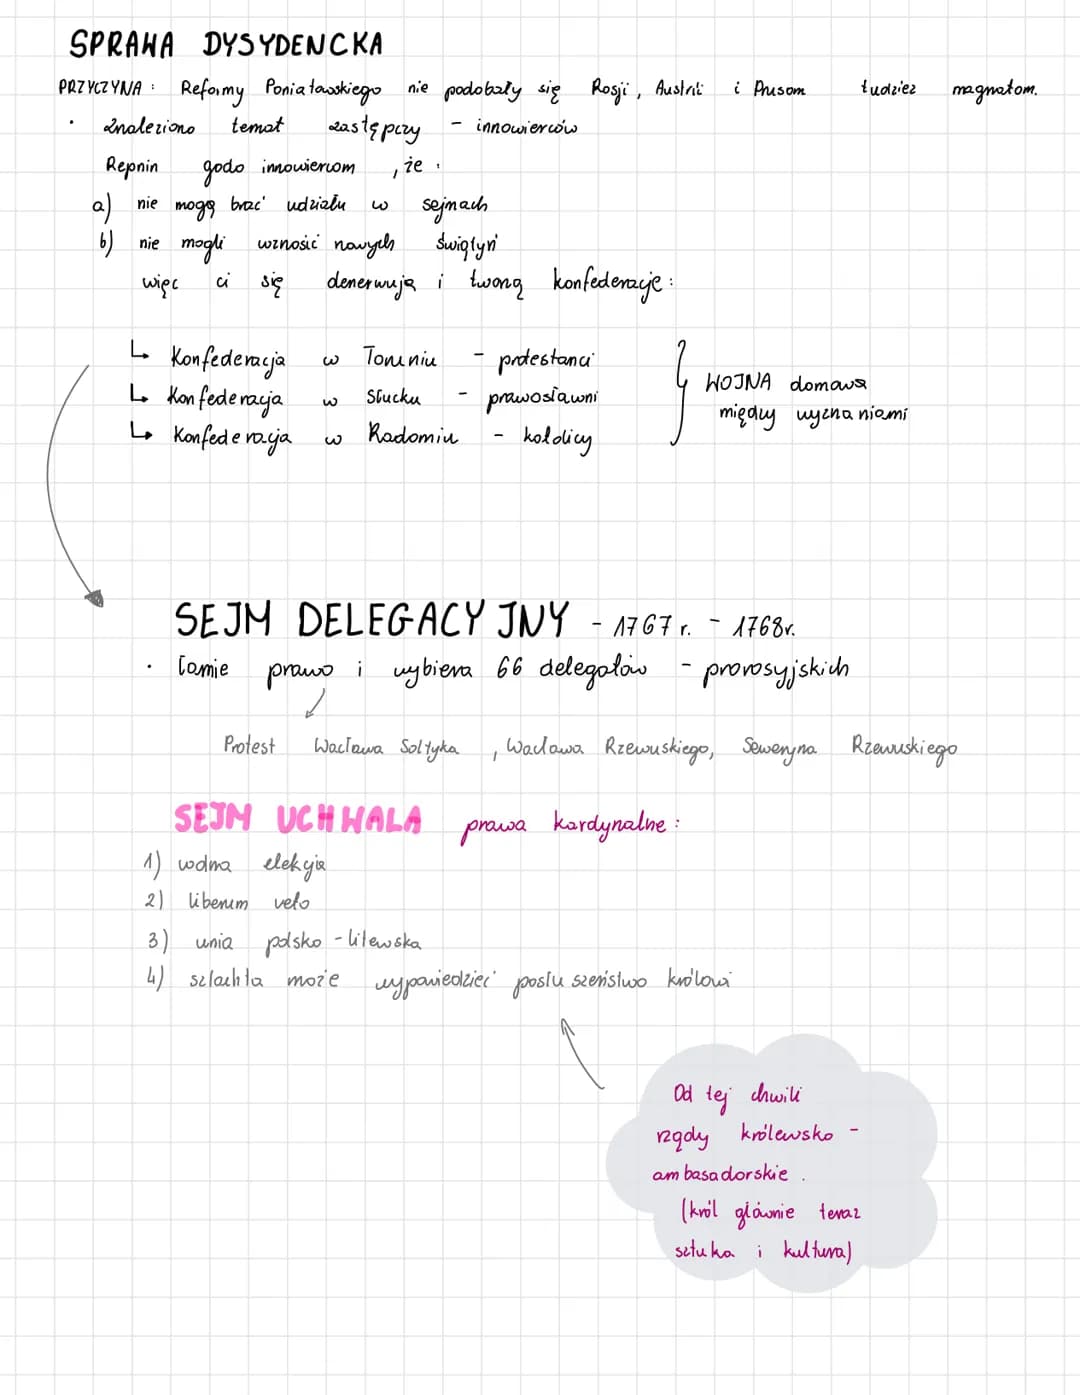 SPRAWA DYSYDENCKA
PRZYCZYNA : Reformy Poniatowskiego nie podobały się Rosji, Austrii i Prusom tudzież magnatom.
• znaleziono temat zastępczy - innowierców
Repnin gada innowiercom , że :
a) nie mogą brać udziału w sejmach
b) nie mogli wznosić nowych świątyń
więc ci się denerwują i tworzą konfederacje :
↳ Konfederacja w Toruniu - protestanci
↳ Konfederacja w Słucku - prawosławni
↳ Konfederacja w Radomiu - katolicy
WOJNA domowa
między wyznaniami
SEJM DELEGACYJNY - 1767 r. - 1768r.
• łamie prawo i wybiera 66 delegatów - prorosyjskich
Protest Wacława Sołtyka , Wacława Rzewuskiego, Seweryna Rzewuskiego
SEJM UCHWALA prawa kardynalne :
1) wolna elekcja
2) liberum veto
3) unia polsko - litewska
4) szlachta może wypowiedzieć posłuszeństwo królowi
Od tej chwili
rządy królewsko -
ambasadorskie .
(król głównie teraz
sztuka i kultura)